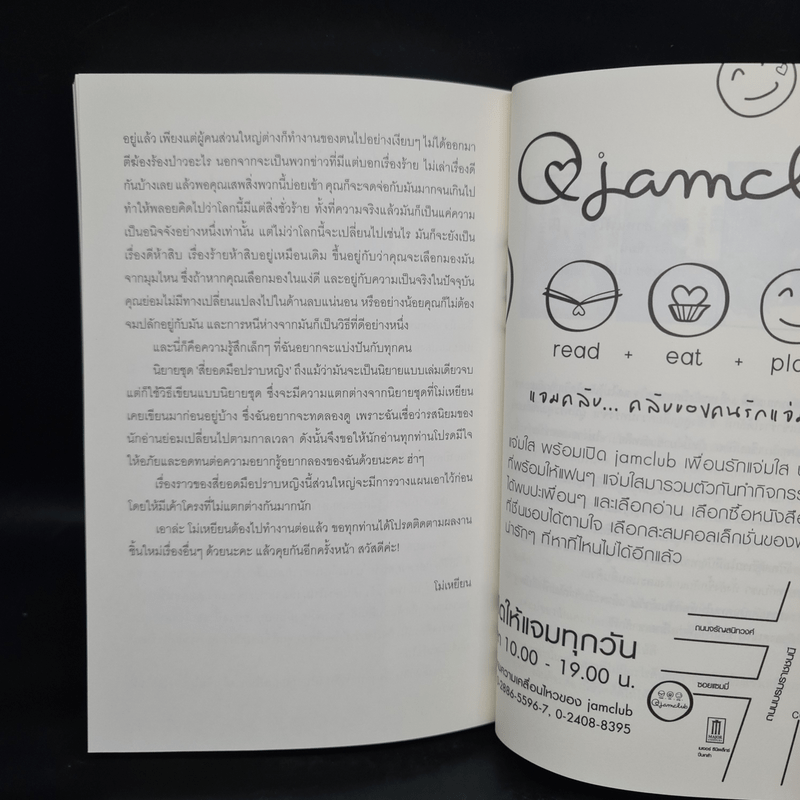 อยู่แล้ว เพียงแต่ผู้คนส่วนใหญ่ต่างก็ทำงานของตนไปอย่างเงียบๆ ไม่ได้ออกมา
ตีฆ้องร้องป่าวอะไร นอกจากจะเป็นพวกข่าวที่มีแต่บอกเรื่องร้าย ไม่เล่าเรื่องดี
กันบ้างเลย แล้วพอคุณเสพสิ่งพวกนี้บ่อยเข้า คุณก็จะจดจ่อกับมันมากจนเกินไป
ทำให้พลอยคิดไปว่าโลกนี้มีแต่สิ่งชั่วร้าย ทั้งที่ความจริงแล้วมันก็เป็นแค่ความ
เป็นอนิจจังอย่างหนึ่งเท่านั้น แต่ไม่ว่าโลกนี้จะเปลี่ยนไปเช่นไร มันก็จะยังเป็น
เรื่องดีห้าสิบ เรื่องร้ายห้าสิบอยู่เหมือนเดิม ขึ้นอยู่กับว่าคุณจะเลือกมองมัน
จากมุมไหน ซึ่งถ้าหากคุณเลือกมองในแง่ดี และอยู่กับความเป็นจริงในปัจจุบัน
คุณย่อมไม่มีทางเปลี่ยนแปลงไปในด้านลบแน่นอน หรืออย่างน้อยคุณก็ไม่ต้อง
จมปลักอยู่กับมัน และการหนีห่างจากมันก็เป็นวิธีที่ดีอย่างหนึ่ง
และนี่ก็คือความรู้สึกเล็กๆ ที่ฉันอยากจะแบ่งปันกับทุกคน
นิยายชุด ‘สี่ยอดมือปราบหญิง’ ถึงแม้ว่ามันจะเป็นนิยายแบบเล่มเดียวจบ
แต่ก็ใช้วิธีเขียนแบบนิยายชุด ซึ่งจะมีความแตกต่างจากนิยายชุดที่โม่เหยียน
เคยเขียนมาก่อนอยู่บ้าง ซึ่งฉันอยากจะทดลองดู เพราะฉันเชื่อว่ารสนิยมของ
นักอ่านย่อมเปลี่ยนไปตามกาลเวลา ดังนั้นจึงขอให้นักอ่านทุกท่านโปรดมีใจ
ให้อภัยและอดทนต่อความอยากรู้อยากลองของฉันด้วยนะคะ ฮ่าๆ
เรื่องราวของสี่ยอดมือปราบหญิงนี้ส่วนใหญ่จะมีการวางแผนเอาไว้ก่อน
โดยให้มีเค้าโครงที่ไม่แตกต่างกันมากนัก
เอาล่ะ โม่เหยียนต้องไปทำงานต่อแล้ว ขอทุกท่านได้โปรดติดตามผลงาน
ชิ้นใหม่เรื่องอื่นๆ ด้วยนะคะ แล้วคุยกันอีกครั้งหน้า สวัสดีค่ะ!
โม่เหยียน
jamclu
read + eat + pla
แจมคลับ... คลับของคนรักแจ่ม
แจ่มใส พร้อมเปิด jamclub เพื่อนรักแจ่มใส
ที่พร้อมให้แฟนๆ แจ่มใสมารวมตัวกันทำกิจกรร
ได้พบปะเพื่อนๆ และเลือกอ่าน เลือกซื้อหนังสือ
ที่ชื่นชอบได้ตามใจ เลือกสะสมคอลเล็กชั่นของ
น่ารักๆ ที่หาที่ไหนไม่ได้อีกแล้ว
ให้แจมทุกวัน
10.00 - 19.00 น.
ความเคลื่อนไหวของ jamclub
2886-5596-7, 0-2408-8395
ถนนจรัญสนิทวงศ์
ซอยแซมมี่
jamclub
MAJOR
เมเจอร์ ซีนีเพล็กซ์
ปิ่นเกล้า